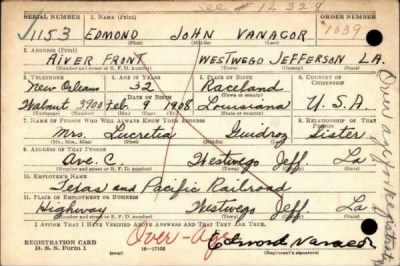 See # 12329
SERIAL NUMBER 1. NAME (Print) ORDER NUMBER
1153 EDMOND JOHN VANACOR 1039
(First) (Middle) (Last)
2. ADDRESS (Print)
RIVER FRONT WESTWEGO JEFFERSON LA.
(Number and street or R. F. D. number) (Town) (County) (State)
3. TELEPHONE 4. AGE IN YEARS 5. PLACE OF BIRTH 6. COUNTRY OF CITIZENSHIP
New Orleans 32 Raceland
DATE OF BIRTH
Walnut 3900 Feb 9 1908 Louisiana U.S.A.
7. NAME OF PERSON WHO WILL ALWAYS KNOW YOUR ADDRESS 8. RELATIONSHIP OF THAT PERSON
Mrs. Lucretia Guidroz Sister
(Mr., Mrs., Miss) (First) (Middle) (Last)
9. ADDRESS OF THAT PERSON
Ave. C. Westwego Jeff. La
(Number and street or R. F. D. number) (Town) (County) (State)
10. EMPLOYER'S NAME
Texas and Pacific Railroad
11. PLACE OF EMPLOYMENT OR BUSINESS
Highway Westwego Jeff. La
(Number and street or R. F. D. number) (Town) (County) (State)
I AFFIRM THAT I HAVE VERIFIED ABOVE ANSWERS AND THAT THEY ARE TRUE.
REGISTRATION CARD Over-Age Edmond Vanacor
D. S. S. Form 1 16—17105
Over age